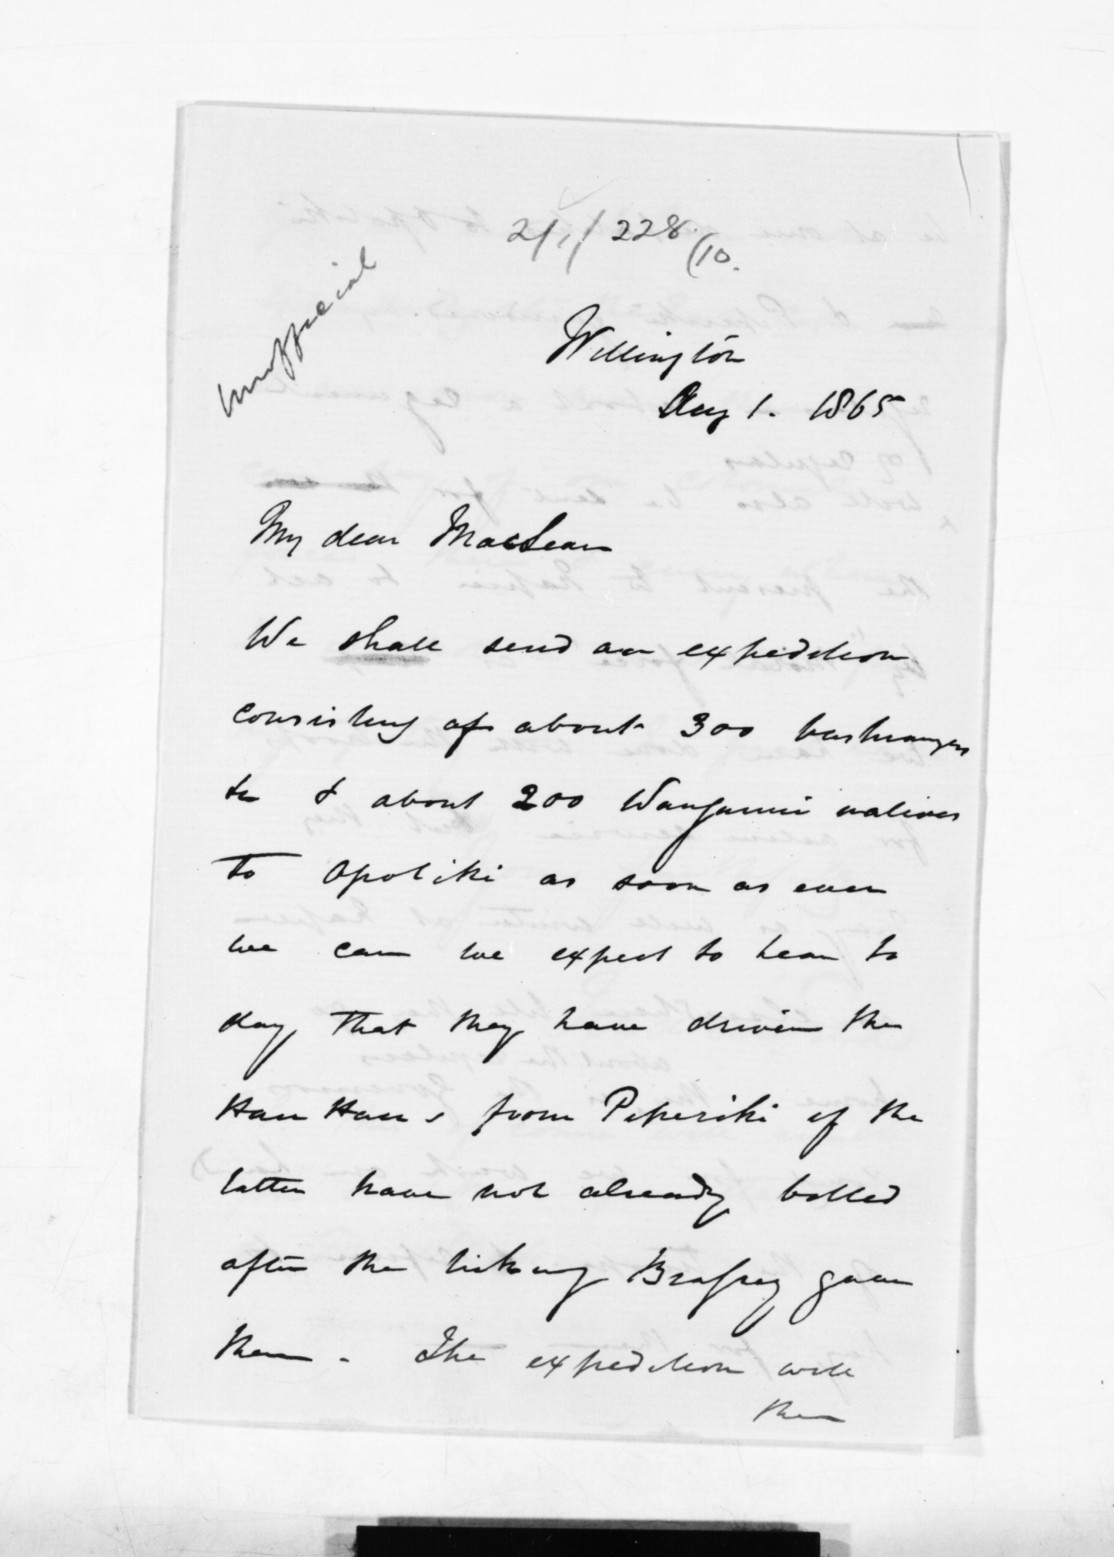 2/1/228/10.
Unofficial
Wellington
Aug 1. 1865
My dear MacLean
We shall send an expedition
consisting of about 300 bushrangers
& about 200 Wanganui natives
to Opotiki as soon as ever
we can we expect to hear to
day that they have driven the
Hau Haus from Piperiki if the
latter have not already bolted
after the licking Brassey gave
them - The expedition will
then